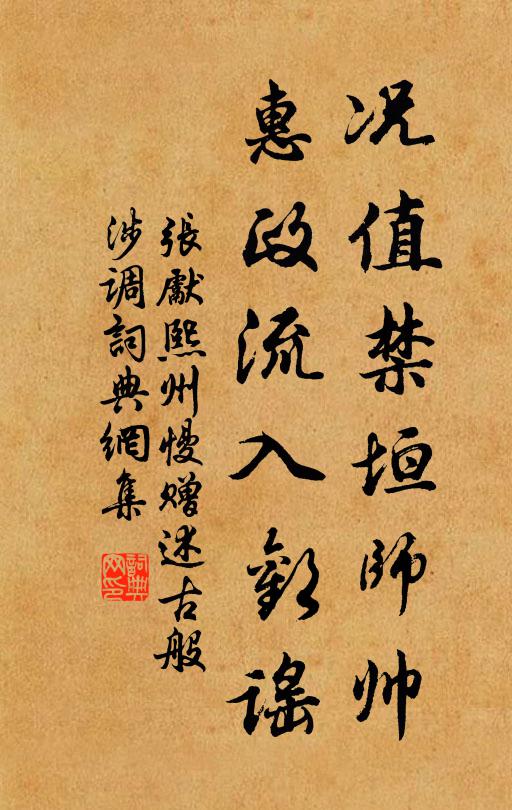 况值禁垣师帅
惠政流入歡謡
張獻熙州慢贈述古般
涉调詞典網集
詞典
网印